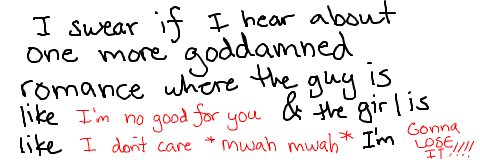 I swear if I hear about
one more goddamned
romance where the guy is
like I'm no good for you & the girl is
like I don't care *mwah mwah* I'm GONNA
LOSE
IT!!!!